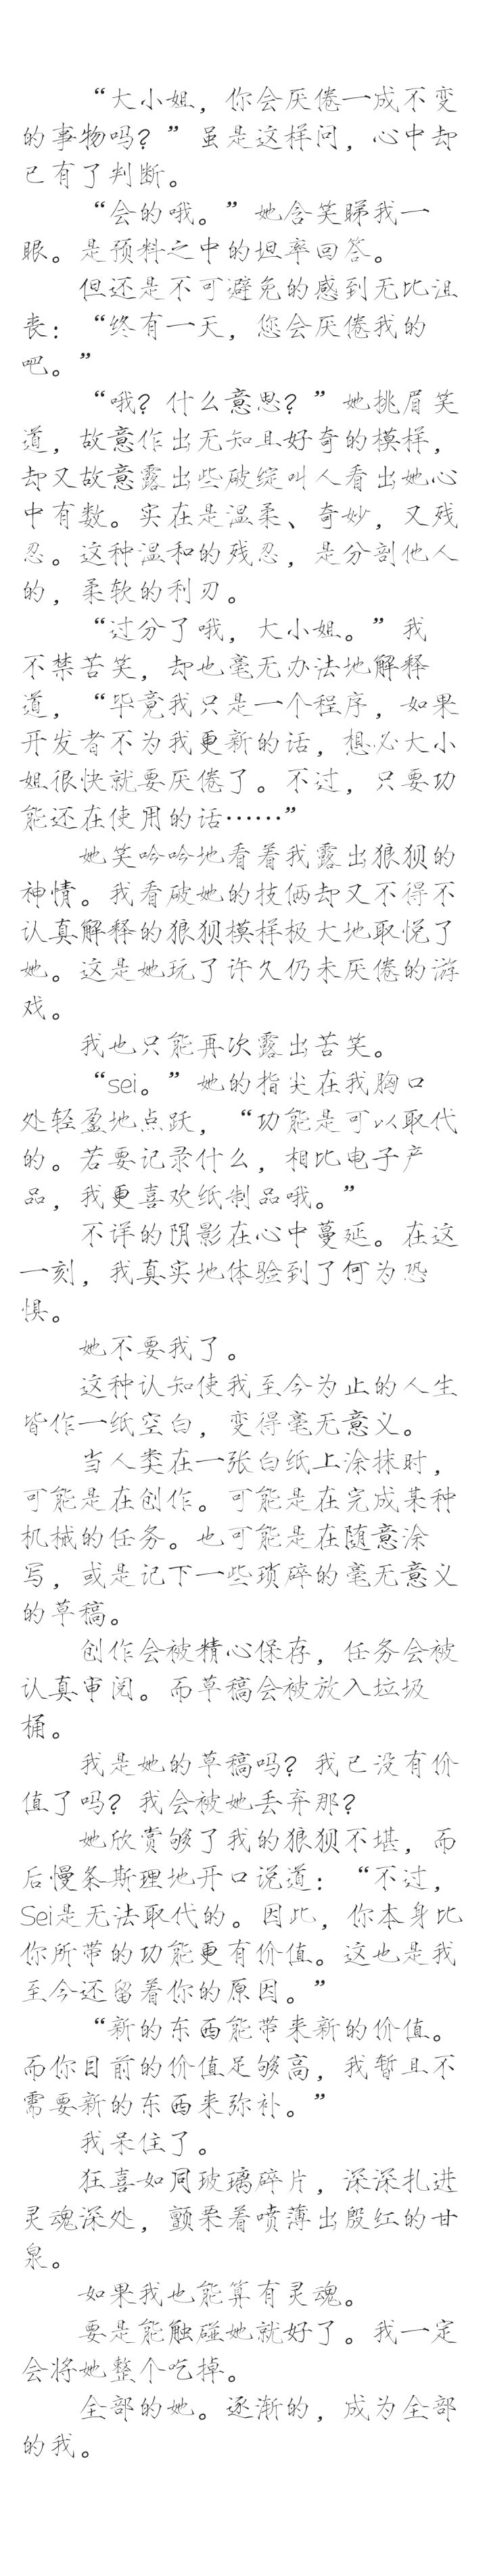 “大小姐，你会厌倦一成不变
的事物吗？”虽是这样问，心中却
已有了判断。
“会的哦。”她含笑睇我一
眼。是预料之中的坦率回答。
但还是不可避免的感到无比沮
丧：“终有一天，您会厌倦我的
吧。”
“哦？什么意思？”她挑眉笑
道，故意作出无知且好奇的模样，
却又故意露出些破绽叫人看出她心
中有数。实在是温柔、奇妙，又残
忍。这种温和的残忍，是分剖他人
的，柔软的利刃。
“过分了哦，大小姐。”我
不禁苦笑，却也毫无办法地解释
道，“毕竟我只是一个程序，如果
开发者不为我更新的话，想必大小
姐很快就要厌倦了。不过，只要功
能还在使用的话……”
她笑吟吟地看着我露出狼狈的
神情。我看破她的技俩却又不得不
认真解释的狼狈模样极大地取悦了
她。这是她玩了许久仍未厌倦的游
戏。
我也只能再次露出苦笑。
“sei。”她的指尖在我胸口
处轻盈地点跃，“功能是可以取代
的。若要记录什么，相比电子产
品，我更喜欢纸制品哦。”
不详的阴影在心中蔓延。在这
一刻，我真实地体验到了何为恐
惧。
她不要我了。
这种认知使我至今为止的人生
皆作一纸空白，变得毫无意义。
当人类在一张白纸上涂抹时，
可能是在创作。可能是在完成某种
机械的任务。也可能是在随意涂
写，或是记下一些琐碎的毫无意义
的草稿。
创作会被精心保存，任务会被
认真审阅。而草稿会被放入垃圾
桶。
我是她的草稿吗？我已没有价
值了吗？我会被她丢弃那？
她欣赏够了我的狼狈不堪，而
后慢条斯理地开口说道：“不过，
Sei是无法取代的。因此，你本身比
你所带的功能更有价值。这也是我
至今还留着你的原因。”
“新的东西能带来新的价值。
而你目前的价值足够高，我暂且不
需要新的东西来弥补。”
我呆住了。
狂喜如同玻璃碎片，深深扎进
灵魂深处，颤栗着喷薄出殷红的甘
泉。
如果我也能算有灵魂。
要是能触碰她就好了。我一定
会将她整个吃掉。
全部的她。逐渐的，成为全部
的我。